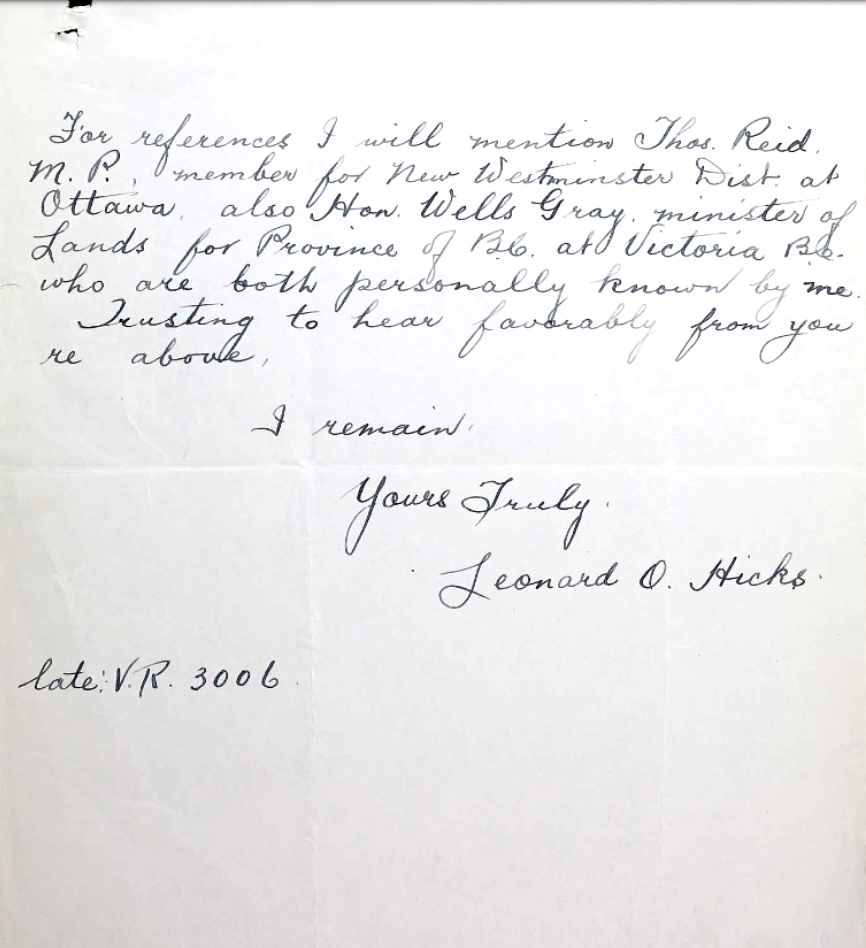 For references I will mention Thos. Reid.
M. P., member for New Westminster Dist. at
Ottawa, also Hon. Wells Gray, minister of
Lands for Province of B.C. at Victoria B.C.
who are both personally known by me.
Trusting to hear favorably from you
re above,
I remain.
Yours Truly.
Leonard O. Hicks.
late: V.R. 3006.